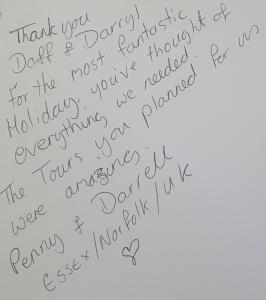 Thank you
Daff & Darryl
For the most fantastic
Holiday. you've thought of
everything we needed.
The Tours you planned for us
were amazing.
Penny & Darrell
Essex/Norfolk/UK